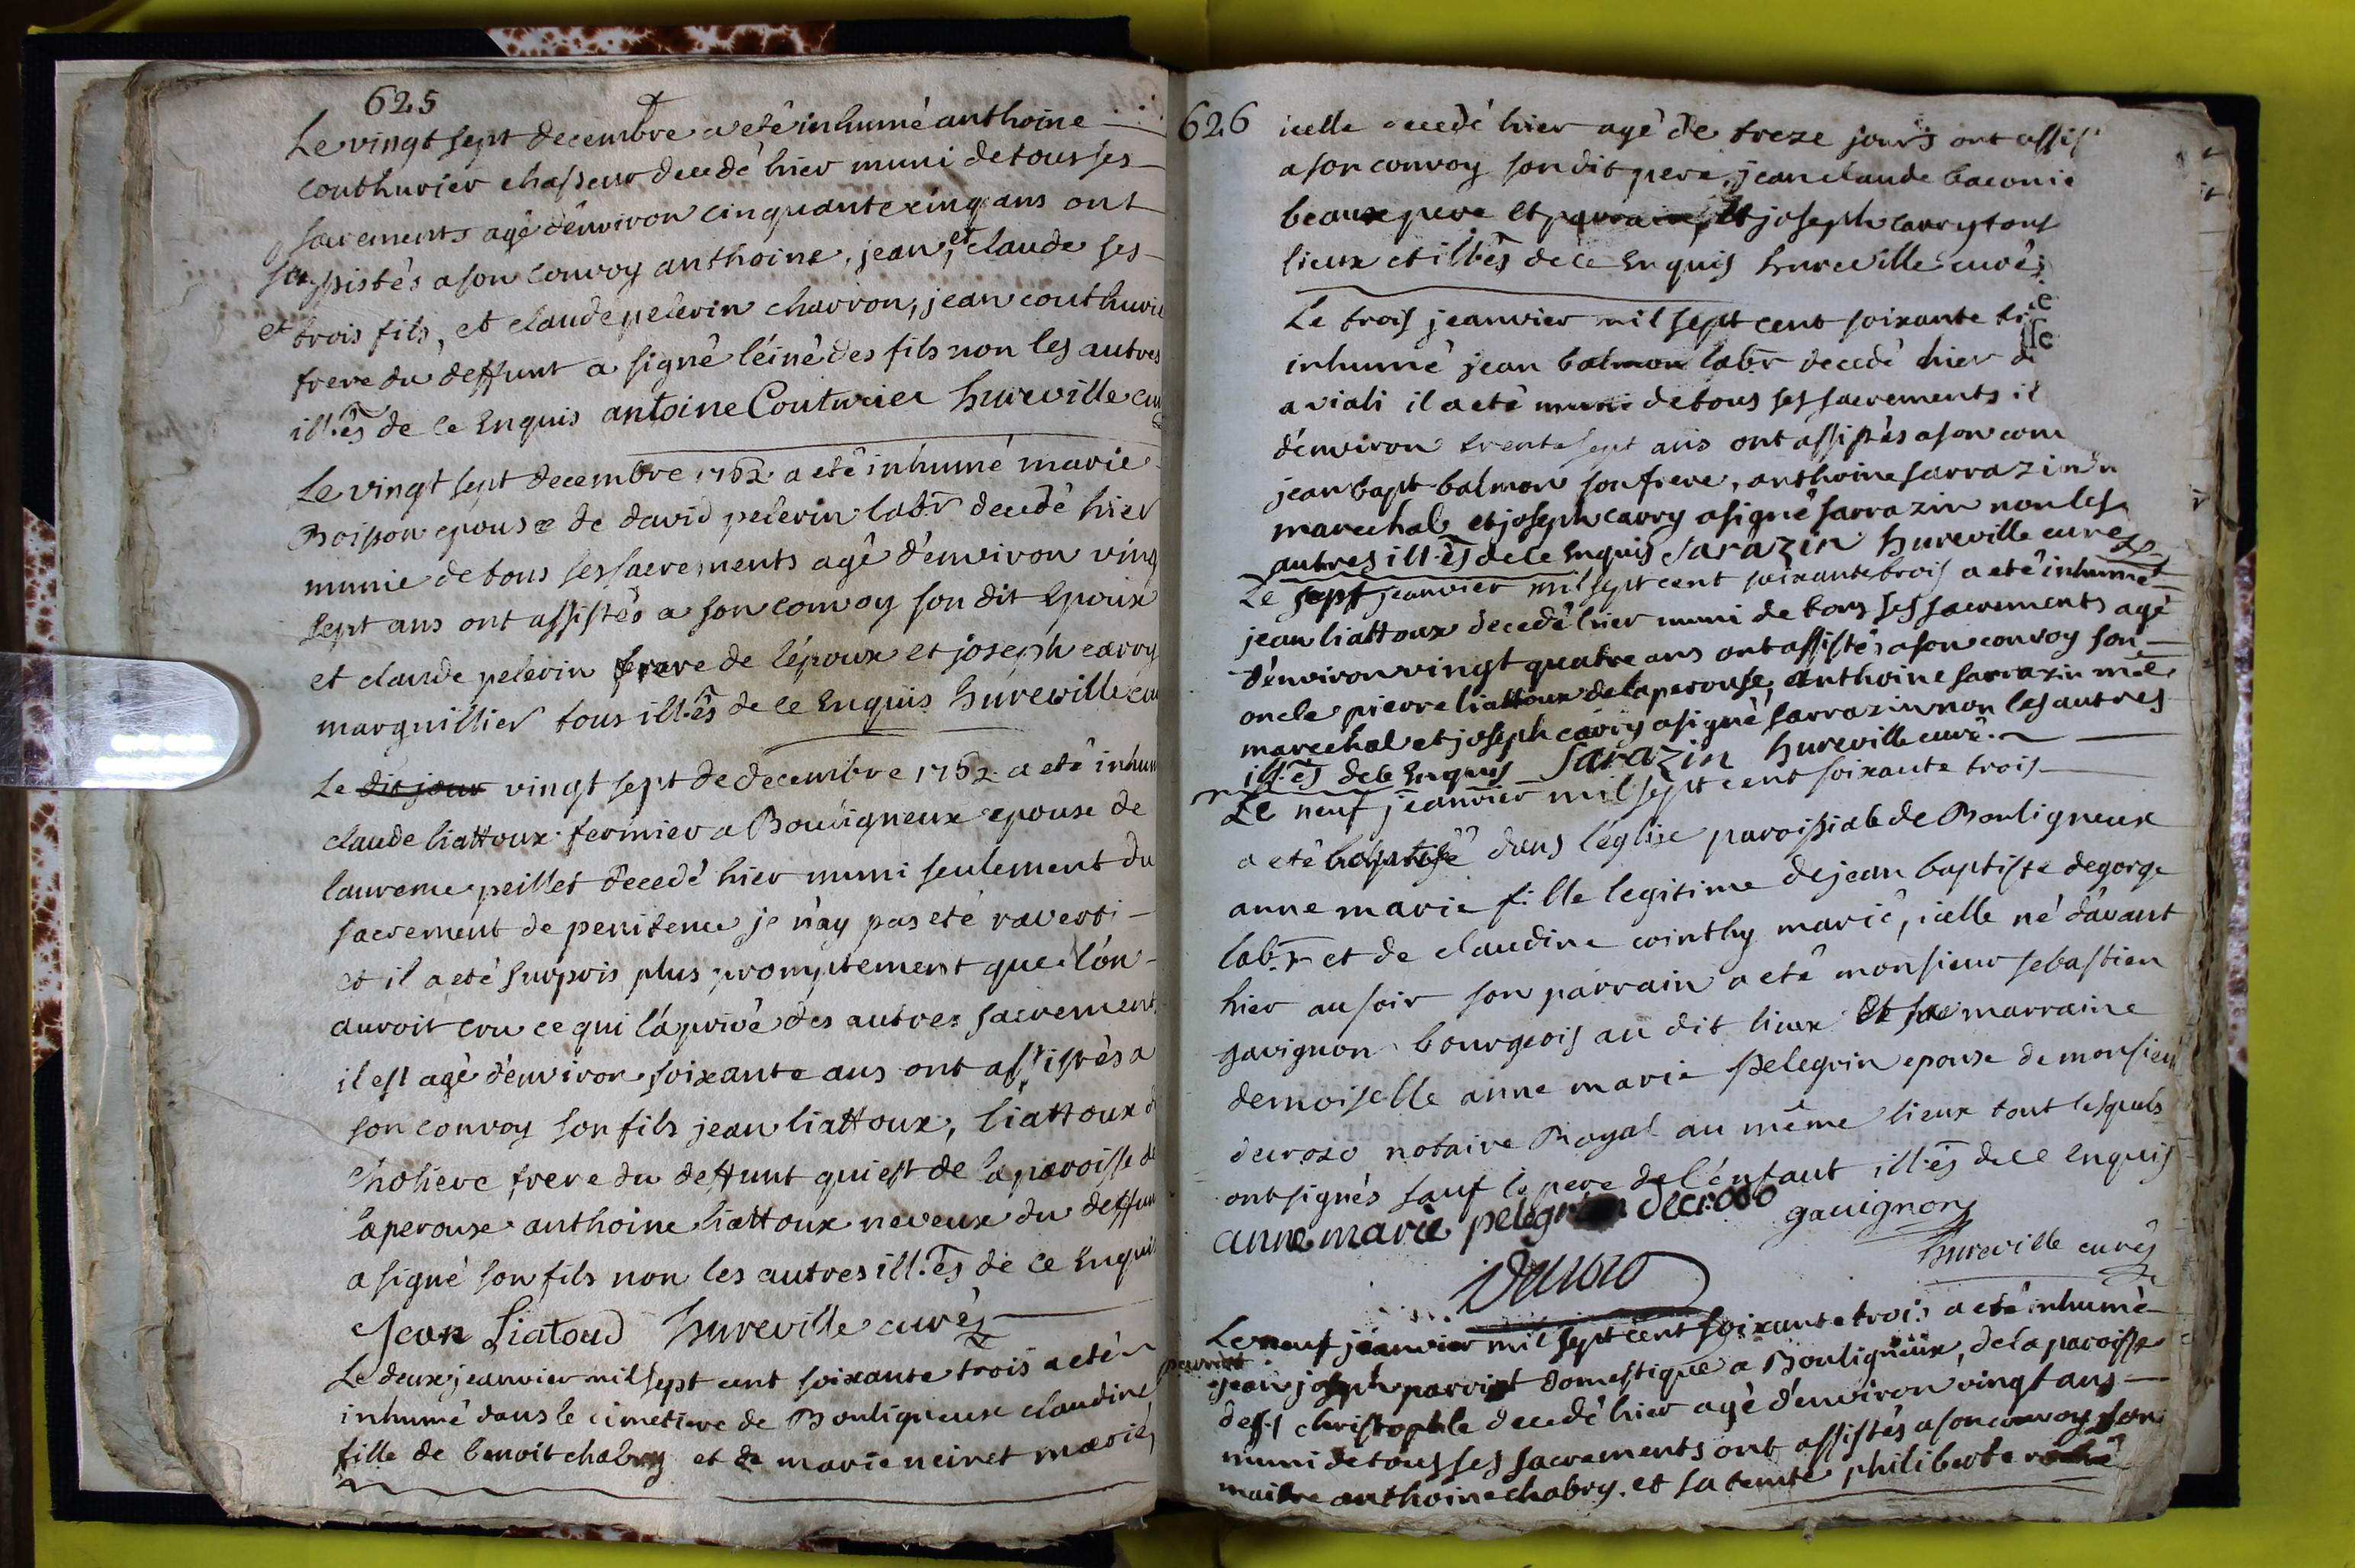 625
Le vingt sept decembre a eté inhumé anthoine
couthurier chasseur decedé hier muni de tous ses
sacrements agé d'environ cinquante cinq ans ont
assistés a son convoy anthoine, jean, et claude ses
et trois fils, et claude pelerin charron, jean couthurie
frere du deffunt a signé l'éiné des fils non les autres
ill.és de ce Enquis antoine Couturier hureville cu
Le vingt sept decembre 1762 a eté inhumé marie
Boisson epouse de david pelerin labr decedé hier
munie de tous ses sacrements agé d'environ ving
sept ans ont assistés a son convoy son dit Epoux
et claude pelerin frere de l'époux et joseph carry
marguillier tous ill.és de ce Enquis hureville cu
Le dit jour vingt sept de decembre 1762 a eté inhum
claude liattoux fermier a Bouligneux epouse de
laurence peillet decedé hier muni seulement du
sacrement de penitence je n'ay pas eté raverti
et il a eté surpris plus promptement que l'on
auroit cru ce qui l'a privé des autres sacrement
il est agé d'environ soixante ans ont assistés a
son convoy son fils jean liattoux, liattoux d
choliere frere du deffunt qui est de la paroisse de
laperouse anthoine liattoux neveux du deffun
a signé son fils non les autres ill.és de ce Enquis
Jean Liatoud hureville curé
Le deux jeanvier mil sept cent soixante trois a eté
inhumé dans le cimetiere de Bouligneux claudine
fille de benoit chabry et de marie neinet mariés
626
icelle decedé hier agé de treze jours ont assis
a son convoy son dit pere, jean claude baconie
beaux pere et parrain, et joseph carry tous
lieux et ill.és de ce Enquis hureville curé
Le trois jeanvier mil sept cent soixante tr
inhumé jean balmon labr decedé hier d
a viali il a eté muni de tous ses sacrements il
d'environ trente sept ans ont assistés a son con
jean bapt balmon son frere, anthoine sarrazin
marechal et joseph carry a signé sarrazin non les
autres ill.és de ce Enquis Sarazin hureville curé
Le sept jeanvier mil sept cent soixante trois a eté inhumé
jean liattoux decedé hier muni de tous ses sacrements agé
d'environ vingt quatre ans ont assistés a son convoy son
oncle pierre liattoux de laperouse, anthoine sarrazin me
marechal et joseph carry a signé sarrazin non les autres
ill.és de ce Enquis Sarazin hureville curé
Le neuf jeanvier mil sept cent soixante trois
a eté baptisé dans l'église paroissiale de Bouligneux
anne marie fille legitime de jean baptiste degorge
labr et de claudine cointhy marié, icelle né d'avant
hier au soir son parrain a eté monsieur sebastien
gavignon bourgeois au dit lieux et sa marraine
demoiselle anne marie pelegrin epouse de monsieu
decrozo notaire Royal au même lieux tout lesquels
ont signés sauf le pere de l'énfant ill.és de ce Enquis
anne marie pelegrin decrozo gauignon
hureville curé
Decrozo
Le neuf jeanvier mil sept cent soixante trois a eté inhumé
jean joseph domestique a Bouligneux, de la paroisse
de st christophle decedé hier agé d'environ vingt ans
muni de tous ses sacrements ont assistés a son convoy son
maitre anthoine chabry, et sa tente philiberte